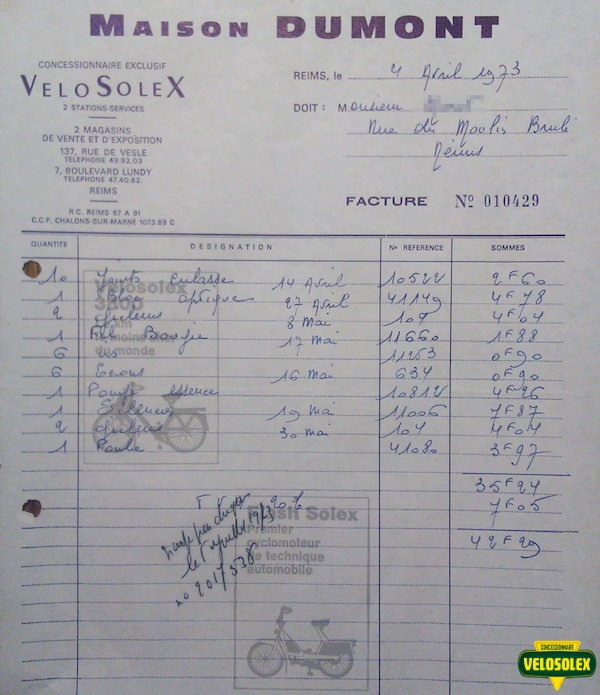 MAISON DUMONT
CONCESSIONNAIRE EXCLUSIF
VELOSOLEX
2 STATIONS-SERVICES
2 MAGASINS
DE VENTE ET D'EXPOSITION
137, RUE DE VESLE
TELEPHONE 49.92.03
7, BOULEVARD LUNDY
TELEPHONE 47.40.62.
REIMS
R.C. REIMS 67 A 91
C.C.P. CHALONS-SUR-MARNE 1073.69 C
REIMS, le 4 Avril 1973
DOIT : Monsieur
Rue du Moulin Brulé
Reims
FACTURE No 010429
QUANTITE DESIGNATION No REFERENCE SOMMES
10 Joints Culasse 14 Avril 10522 2F60
1 Bloc optique 27 Avril 41149 4F78
2 8 Mai 104 4F04
1 Fil Bougie 17 Mai 11660 1F88
6 vis 11253 0F90
6 Ecrous 16 Mai 634 0F90
1 Pompe essence 10812 4F26
1 Silencieux 19 Mai 11006 7F87
2 30 Mai 104 4F04
1 41080 3F97
35F24
7F05
42F29
T 20%
le 1973
no 2017538
Velosolex
3800
km
moins
du monde
Flash Solex
Premier
cyclomoteur
de technique
automobile
CONCESSIONNAIRE
VELOSOLEX